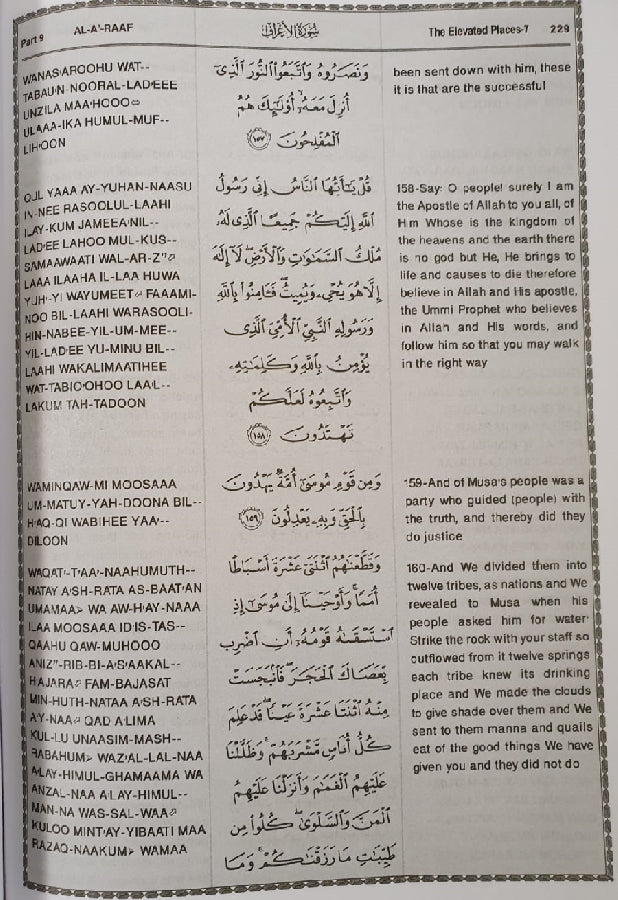 Part 9
AL-A'-RAAF
سُورَةُ الأَعْرَاف
The Elevated Places-7
229
WANAS'AROOHU WAT--
TABAU'N-NOORAL-LAD'EEE
UNZILA MAA'HOOO
ULAAA-IKA HUMUL-MUF--
LIH'OON
وَنَصَرُوهُ وَٱتَّبَعُوا۟ ٱلنُّورَ ٱلَّذِىٓ
أُنزِلَ مَعَهُۥٓ ۙ أُو۟لَـٰٓئِكَ هُمُ
ٱلْمُفْلِحُونَ ﴿١٥٧﴾
been sent down with him, these
it is that are the successful
QUL YAAA AY-YUHAN-NAASU
IN-NEE RASOOLUL-LAAHI
ILAY-KUM JAMEEA'NIL--
LAD'EE LAHOO MUL-KUS--
SAMAAWAATI WAL-AR-Z''
LAAA ILAAHA IL-LAA HUWA
YUH'-YI WAYUMEET FAAAMI-
NOO BIL-LAAHI WARASOOLI-
HIN-NABEE-YIL-UM-MEE--
YIL-LAD'EE YU-MINU BIL--
LAAHI WAKALIMAATIHEE
WAT-TABIO'OHOO LAA'L--
LAKUM TAH-TADOON
قُلْ يَـٰٓأَيُّهَا ٱلنَّاسُ إِنِّى رَسُولُ
ٱللَّهِ إِلَيْكُمْ جَمِيعًا ٱلَّذِى لَهُۥ
مُلْكُ ٱلسَّمَـٰوَٰتِ وَٱلْأَرْضِ ۖ لَآ إِلَـٰهَ
إِلَّا هُوَ يُحْىِۦ وَيُمِيتُ ۖ فَـَٔامِنُوا۟ بِٱللَّهِ
وَرَسُولِهِ ٱلنَّبِىِّ ٱلْأُمِّىِّ ٱلَّذِى
يُؤْمِنُ بِٱللَّهِ وَكَلِمَـٰتِهِۦ
وَٱتَّبِعُوهُ لَعَلَّكُمْ
تَهْتَدُونَ ﴿١٥٨﴾
158-Say: O people! surely I am
the Apostle of Allah to you all, of
Him Whose is the kingdom of
the heavens and the earth there
is no god but He, He brings to
life and causes to die therefore
believe in Allah and His apostle,
the Ummi Prophet who believes
in Allah and His words, and
follow him so that you may walk
in the right way
WAMINQAW-MI MOOSAAA
UM-MATUY-YAH-DOONA BIL--
H'AQ-QI WABIHEE YAA'--
DILOON
وَمِن قَوْمِ مُوسَىٰٓ أُمَّةٌ يَهْدُونَ
بِٱلْحَقِّ وَبِهِۦ يَعْدِلُونَ ﴿١٥٩﴾
159-And of Musa's people was a
party who guided (people) with
the truth, and thereby did they
do justice
WAQAT'-T'AA'-NAAHUMUTH--
NATAY A'SH-RATA AS-BAAT'AN
UMAMAA WA AW-H'AY-NAAA
ILAA MOOSAAA ID'IS-TAS--
QAAHU QAW-MUHOOO
ANIZ''-RIB-BI-A'S'AAKAL--
HAJARA FAM-BAJASAT
MIN-HUTH-NATAA A'SH-RATA
A'Y-NAA QAD A'LIMA
KUL-LU UNAASIM-MASH--
RABAHUM WAZ'AL-LAL-NAA
A'LAY-HIMUL-GHAMAAMA WA
ANZAL-NAA A'LAY-HIMUL--
MAN-NA WAS-SAL-WAA
KULOO MINT'AY-YIBAATI MAA
RAZAQ-NAAKUM WAMAA
وَقَطَّعْنَـٰهُمُ ٱثْنَتَىْ عَشْرَةَ أَسْبَاطًا
أُمَمًا ۚ وَأَوْحَيْنَآ إِلَىٰ مُوسَىٰٓ إِذِ
ٱسْتَسْقَىٰهُ قَوْمُهُۥٓ أَنِ ٱضْرِب
بِّعَصَاكَ ٱلْحَجَرَ ۖ فَٱنۢبَجَسَتْ
مِنْهُ ٱثْنَتَا عَشْرَةَ عَيْنًا ۖ قَدْ عَلِمَ
كُلُّ أُنَاسٍ مَّشْرَبَهُمْ ۚ وَظَلَّلْنَا
عَلَيْهِمُ ٱلْغَمَـٰمَ وَأَنزَلْنَا عَلَيْهِمُ
ٱلْمَنَّ وَٱلسَّلْوَىٰ ۖ كُلُوا۟ مِن
طَيِّبَـٰتِ مَا رَزَقْنَـٰكُمْ ۚ وَمَا
160-And We divided them into
twelve tribes, as nations and We
revealed to Musa when his
people asked him for water·
Strike the rock with your staff so
outflowed from it twelve springs
each tribe knew its drinking
place and We made the clouds
to give shade over them and We
sent to them manna and quails
eat of the good things We have
given you and they did not do